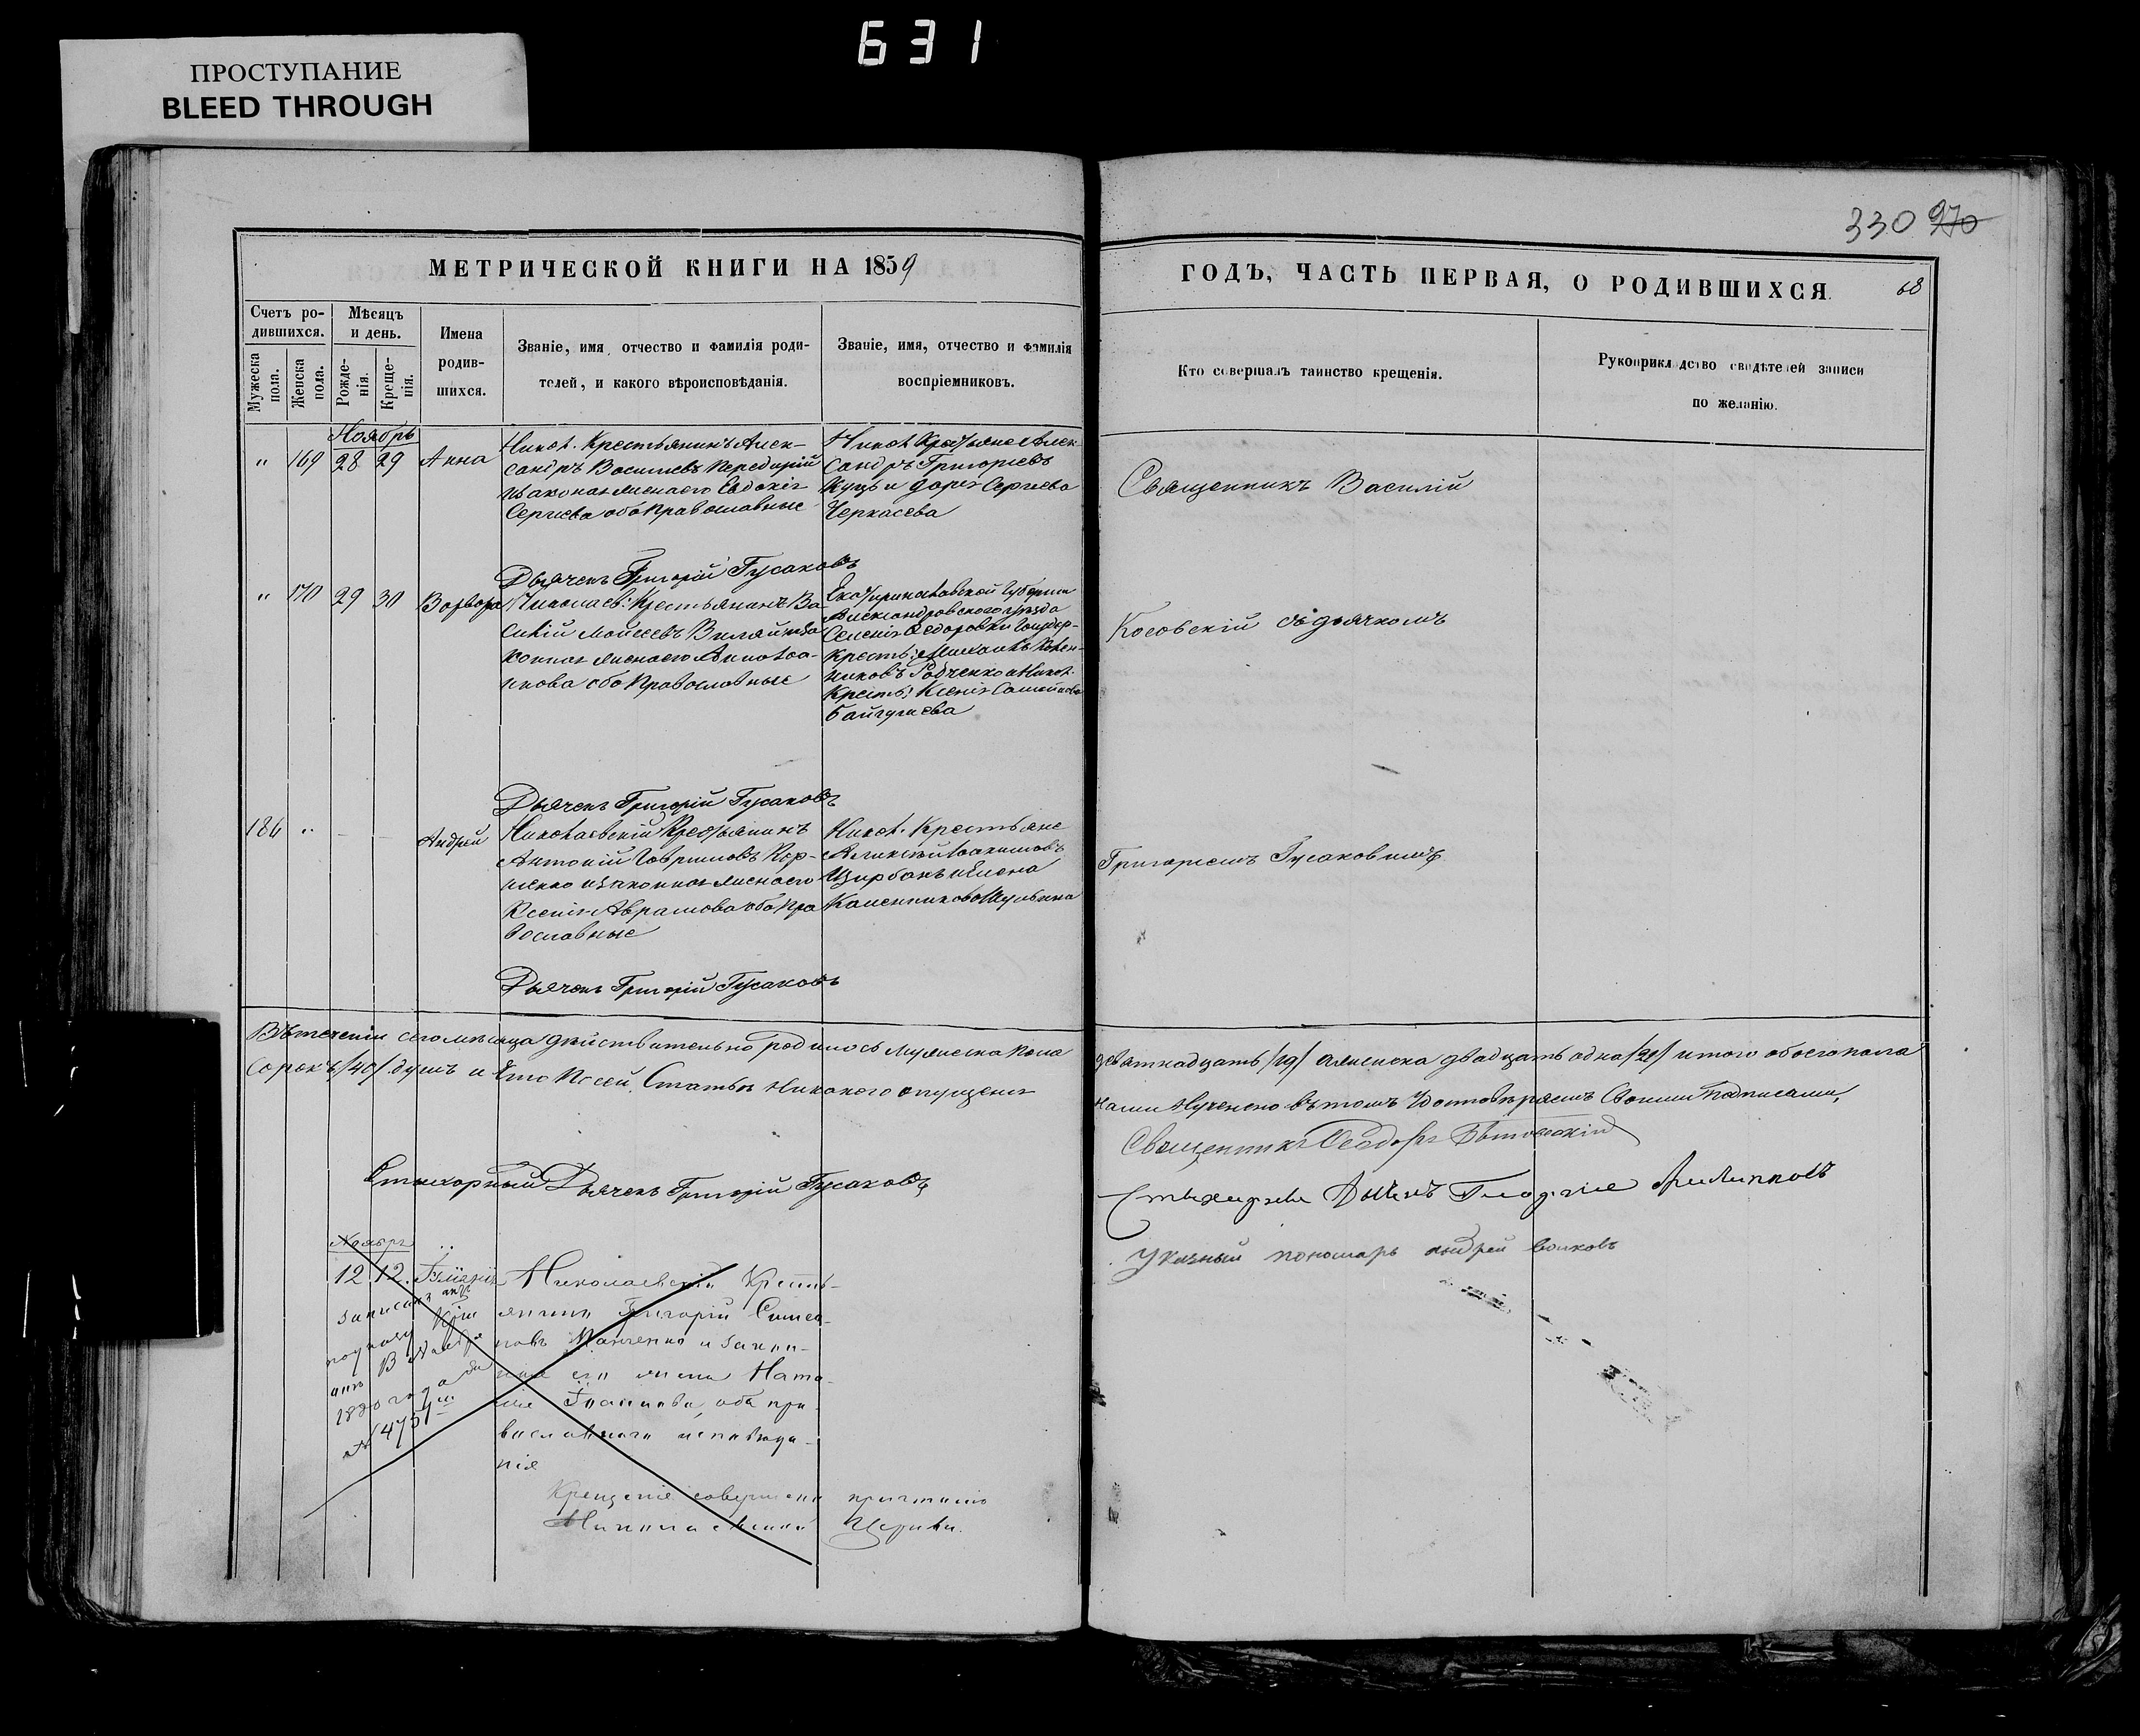 631
ПРОСТУПАНИЕ
BLEED THROUGH
330 970
МЕТРИЧЕСКОЙ КНИГИ НА 1859
ГОДЪ, ЧАСТЬ ПЕРВАЯ, О РОДИВШИХСЯ.
68
Счетъ ро-
дившихся.
Мужеска
пола.
Женска
пола.
Мѣсяцъ
и день.
Рожде-
нія.
Креще-
нія.
Имена
родив-
шихся.
Званіе, имя, отчество и фамилія роди-
телей, и какого вѣроисповѣданія.
Званіе, имя, отчество и фамилія
воспріемниковъ.
Кто совершалъ таинство крещенія.
Рукоприкладство свидѣтелей записи
по желанію.
Ноябрь
" 169 28 29 Анна
Никол. Крестьянинъ Алек-
сандръ Васильевъ
Евдокія
Сергеева оба православные
Никол. Крестьяне Алек-
сандръ Григорьевъ
Куць и Дарья Сергеева
Черкасева
Священникъ Василій
Дьячекъ Григорій Гусаковъ
" 170 29 30 Варвара
Николаев: Крестьянинъ Ва-
силій Мойсеевъ
оба православные
Екатеринославской Губерніи
Александровского уезда
Федоровки
Крест:
Радченко и Никол.
Крест: Ксенія
Байгушева
Косовскій съ дьячкомъ
Дьячекъ Григорій Гусаковъ
186 " — — Андрей
Николаевскій Крестьянинъ
Антоній Гавриловъ Кор-
ненко и законная жена его
Ксенія Аврамова оба пра-
вославные
Никол. Крестьяне
Алексей Іоакимовъ
Щирбакъ и Елена
Григоріемъ Гусаковымъ
Дьячекъ Григорій Гусаковъ
Въ теченіи сего месяца действительно родилось мужеска пола
девятнадцать /19/ а женска двадцать одна /21/ итого обоего пола
сорокъ /40/ душъ и что по сей статьи никакого опущенія
нами не учинено въ томъ удостоверяемъ своими подписами,
Священникъ Феодоръ
Стихарный Дьячекъ Григорій Гусаковъ
Указный пономарь Андрей Волковъ
Ноябрь
12 12
записанъ
1880 года
№ 4751
Николаевскій Кресть-
янинъ Григорій Симео-
новъ Манченко и закон-
ная его жена Ната-
лія оба пра-
вославнаго исповеда-
нія
Крещеніе совершено причтомъ
Николаевской Церкви.